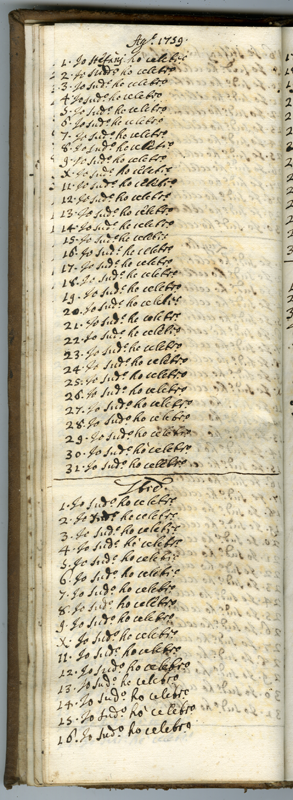 Agº 1739.
1. Io Stefanj ho celebrº
2. Io Sudº ho celebrº
3. Io Sudº ho celebrº
4. Io Sudº ho celebrº
5. Io Sudº ho celebrº
6. Io Sudº ho celebrº
7. Io Sudº ho celebrº
8. Io Sudº ho celebrº
9. Io Sudº ho celebrº
X. Io Sudº ho celebrº
11. Io Sudº ho celebrº
12. Io Sudº ho celebrº
13. Io Sudº ho celebrº
14. Io Sudº ho celebrº
15. Io Sudº ho celebrº
16. Io Sudº ho celebrº
17. Io Sudº ho celebrº
18. Io Sudº ho celebrº
19. Io Sudº ho celebrº
20. Io Sudº ho celebrº
21. Io Sudº ho celebrº
22. Io Sudº ho celebrº
23. Io Sudº ho celebrº
24. Io Sudº ho celebrº
25. Io Sudº ho celebrº
26. Io Sudº ho celebrº
27. Io Sudº ho celebrº
28. Io Sudº ho celebrº
29. Io Sudº ho celebrº
30. Io Sudº ho celebrº
31. Io Sudº ho celebrº
7bre
1. Io Sudº ho celebrº
2. Io Sudº ho celebrº
3. Io Sudº ho celebrº
4. Io Sudº ho celebrº
5. Io Sudº ho celebrº
6. Io Sudº ho celebrº
7. Io Sudº ho celebrº
8. Io Sudº ho celebrº
9. Io Sudº ho celebrº
X. Io Sudº ho celebrº
11. Io Sudº ho celebrº
12. Io Sudº ho celebrº
13. Io Sudº ho celebrº
14. Io Sudº ho celebrº
15. Io Sudº ho celebrº
16. Io Sudº ho celebrº